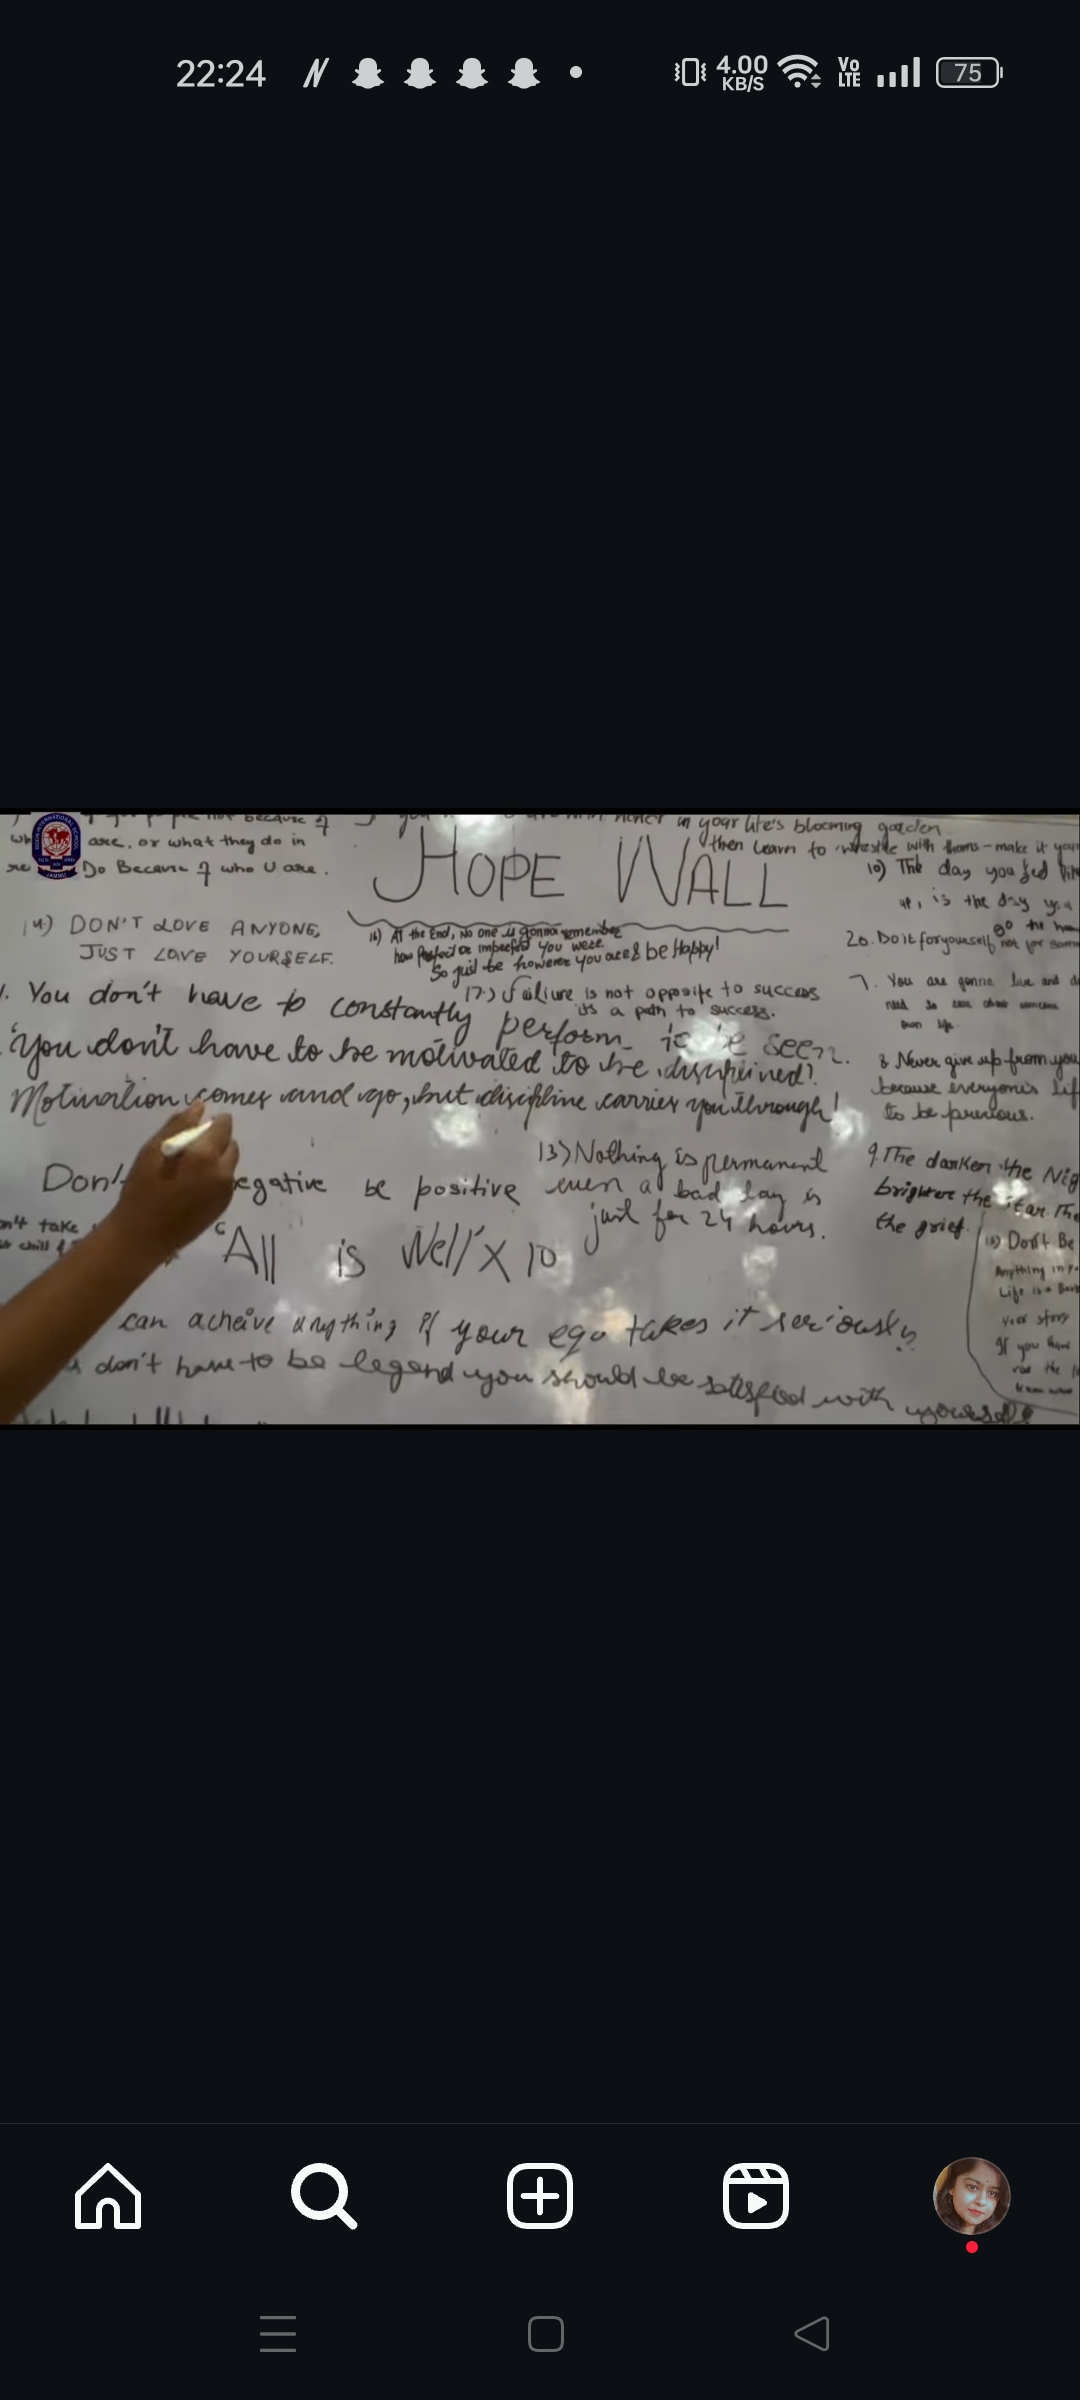 22:24
4.00
KB/S
Vo
LTE
75
not because of
in your life's blooming garden
are, or what they do in
then learn to wrestle with thorns - make it your
Do Because of who U are.
HOPE WALL
10) The day you
up, is the day you
14) DON'T LOVE ANYONE,
JUST LOVE YOURSELF.
16) At the End, No one is gonna remember
how Perfect or imperfect You were
So just be however you are & be Happy!
20. Do it for yourself not for
You don't have to constantly perform to be seen.
17.) failiure is not opposite to success
its a path to success.
7. You are gonna live and
need so care about someone
own life.
"You don't have to be motivated to be disciplined!
Motivation comes and go, but discipline carries you through!
8. Never give up from you
because everyone's
to be previous.
Don't
egative be positive
13) Nothing is permanent
even a bad day is
just for 24 hours.
9. The darker the Nig
brighter the star. The
the grief.
take
chill
'All is Well' X 10
Don't Be
Anything in
Life is a
your story
If you have
can acheive anything if your ego takes it seriously
don't have to be legend you should be satisfied with yourself